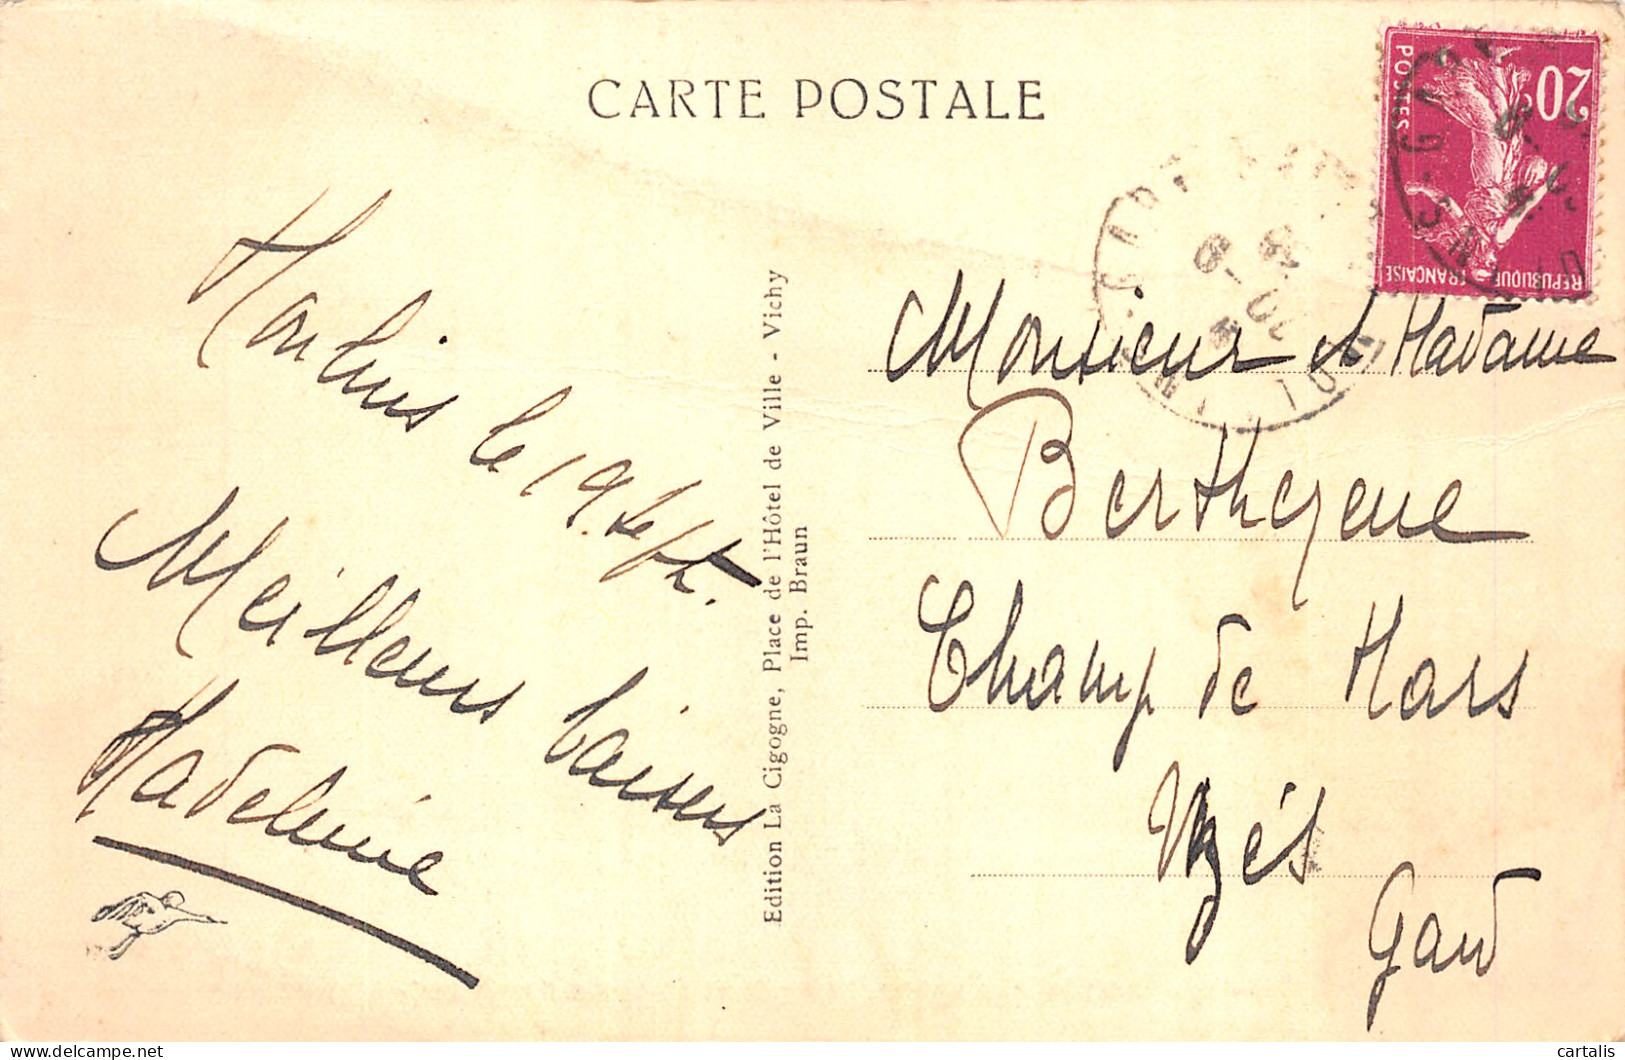 CARTE POSTALE
20c
POSTES
REPUBLIQUE FRANCAISE
Moulins le 19 Sept.
Meilleurs baisers
Madeleine
Edition La Cigogne, Place de l'Hôtel de Ville - Vichy
Imp. Braun
Monsieur et Madame
Berthezene
Champ de Mars
Uzés
Gard
delcampe.net
cartalis